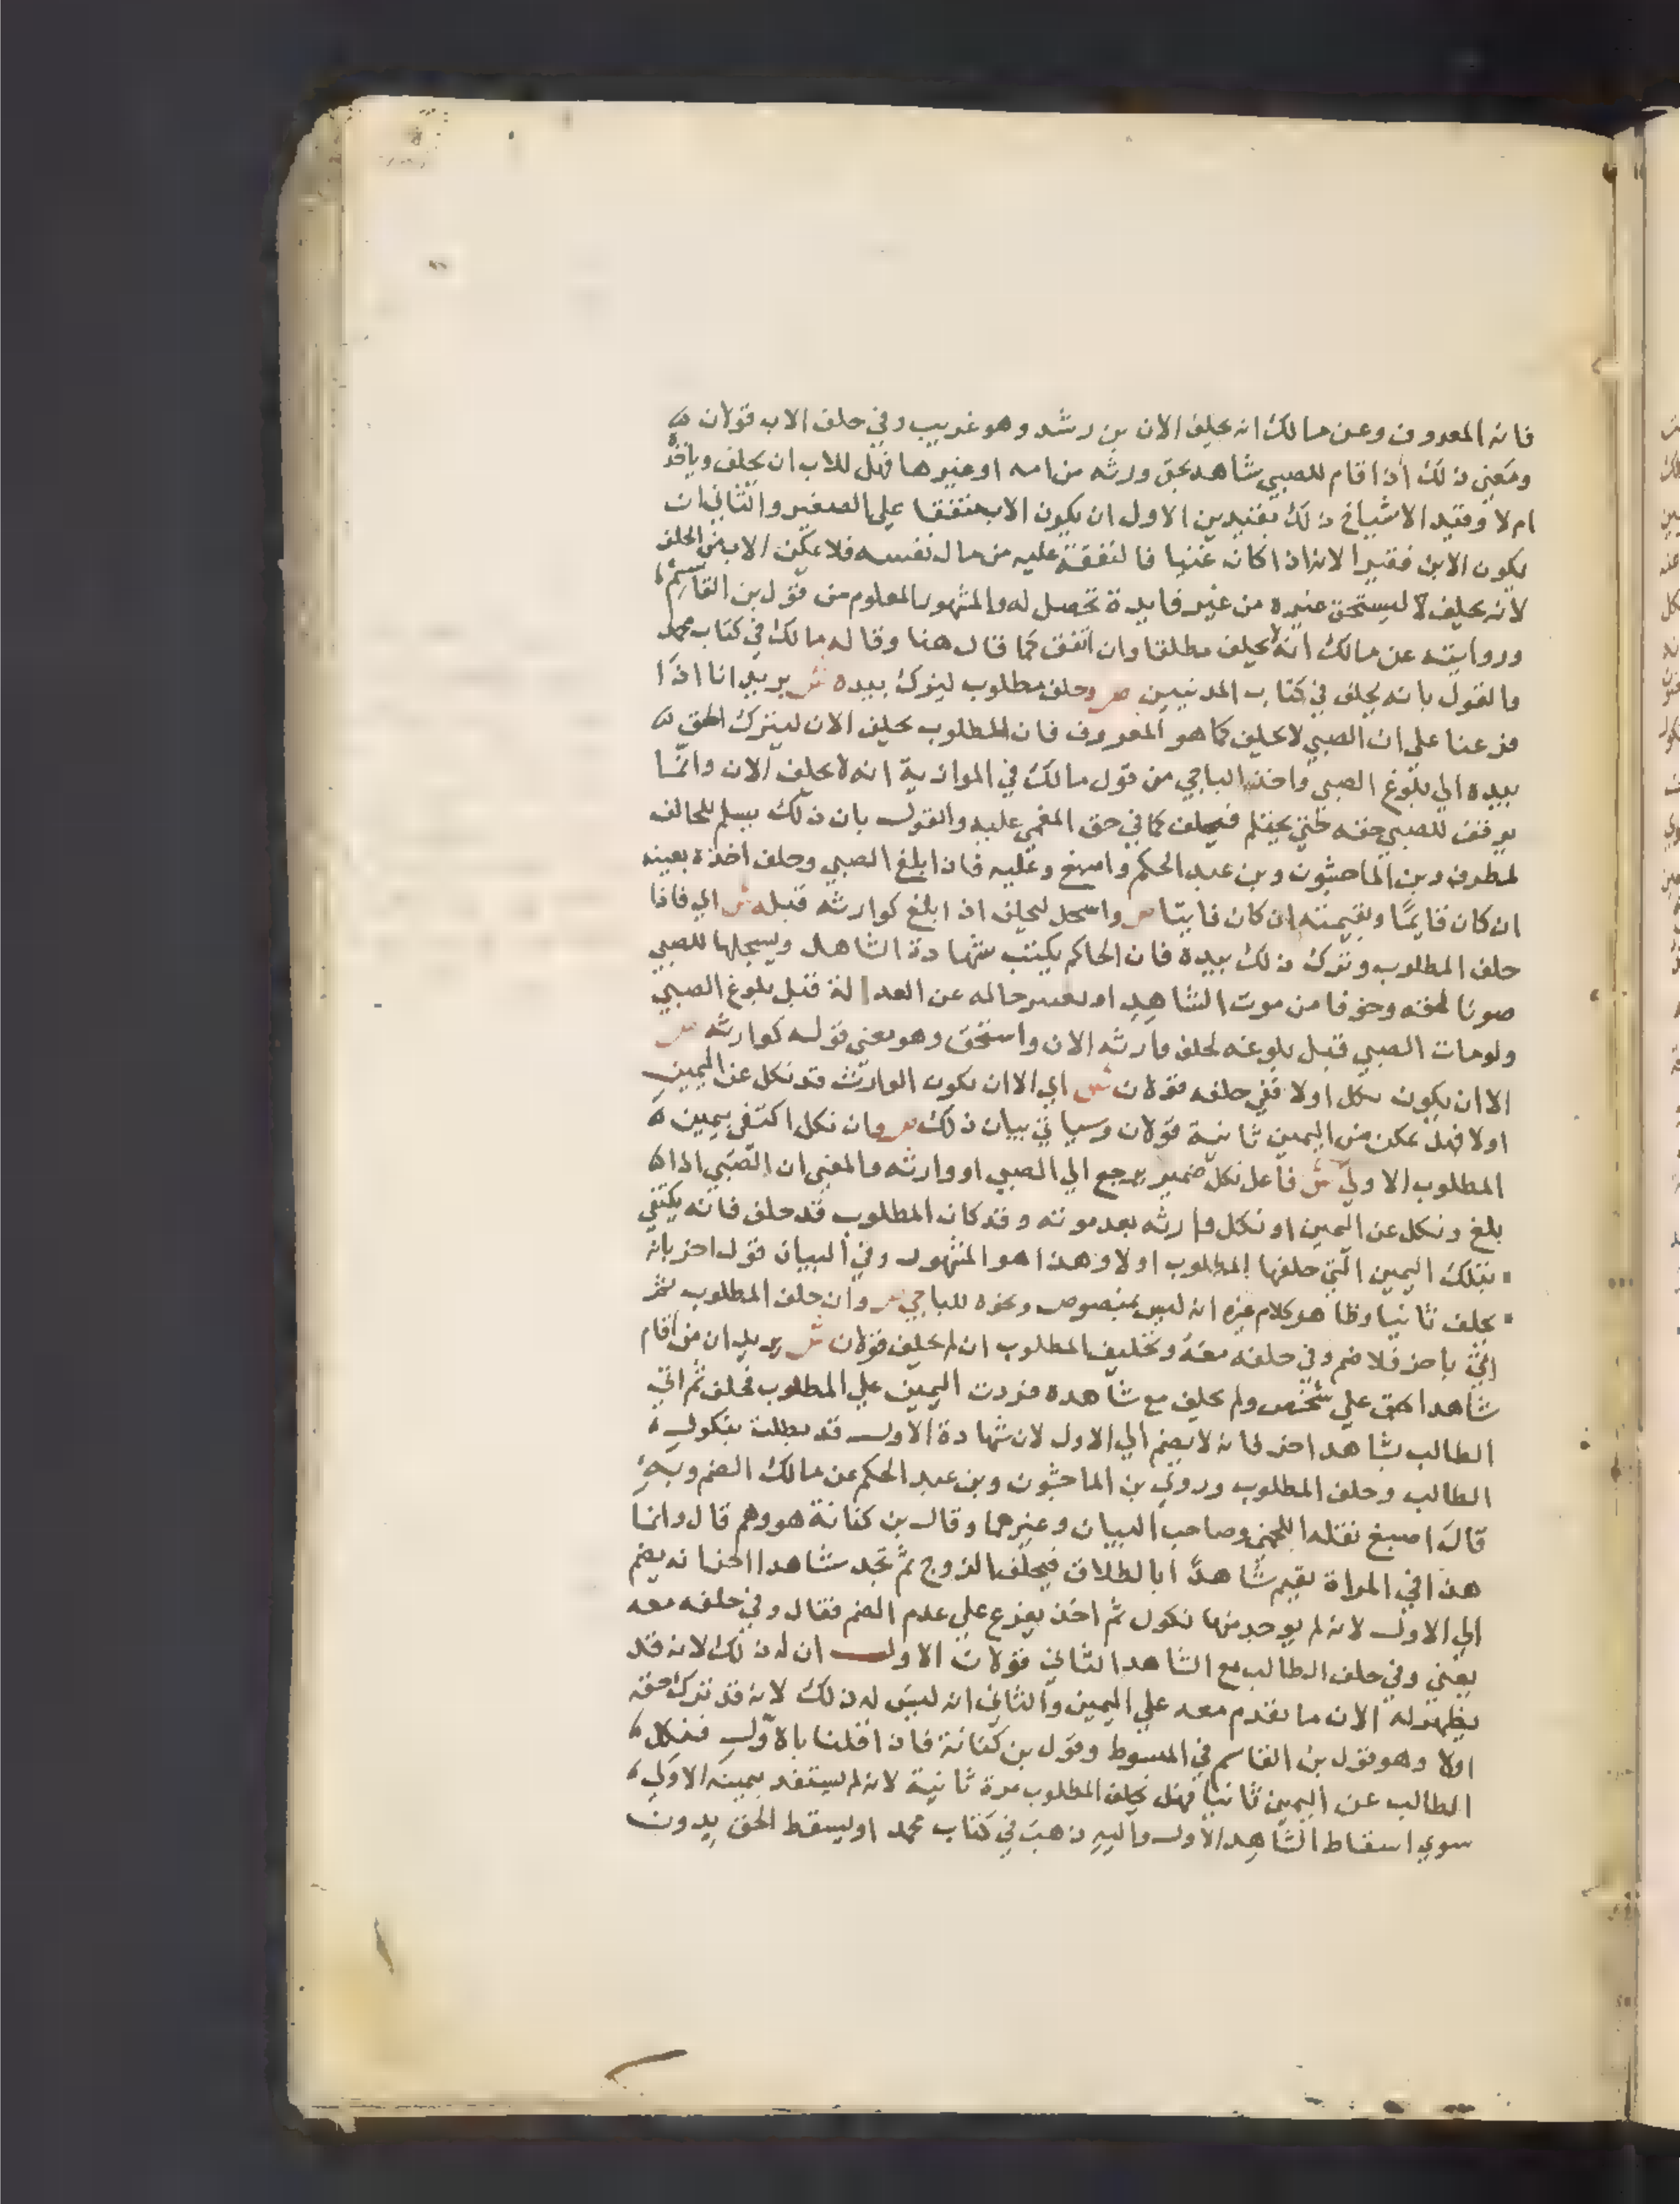 فانه المعروف وعن مالك انه يحلف الان بن رشد وهو غريب وفي حلف الاب قولان
ومعني ذلك اذا قام للصبي شاهد بحق ورثه من امه او غيرها فهل للاب ان يحلف وياخذ
ام لا وقيد الاشياخ ذلك بقيدين الاول ان يكون الاب منفقا علي الصغير والثاني ان
يكون الابن فقيرا لانه اذا كان غنيا فالنفقة عليه من مال نفسه فلا يمكن الاب من الحلف
لانه يحلف لا ليستحق غيره من غير فايدة تحصل له والمشهور المعلوم من قول بن القاسم
وروايته عن مالك انه لا يحلف مطلقا وان انفق كما قال هنا وقاله مالك في كتاب محمد
والقول بانه يحلف في كتاب المدنيين ص وحلف مطلوب ليترك بيده ش يريد انا اذا
فرعنا علي ان الصبي لا يحلف كما هو المعروف فان المطلوب يحلف الان ليترك الحق
بيده الي بلوغ الصبي واخذ الباجي من قول مالك في الموازية انه لا يحلف الان وانما
يوقف للصبي حقه حتي يحتلم فيحلف كما في حق المغمي عليه والقول بان ذلك يسلم للحالف
لمطرف وبن الماجشون وبن عبد الحكم واصبغ وعليه فاذا بلغ الصبي وحلف اخذه بعينه
ان كان قايما وبقيمته ان كان فايتا ص واسجل ليحلف اذا بلغ كوارثه قبله ش اي فاذا
حلف المطلوب وترك ذلك بيده فان الحاكم يكتب شهادة الشاهد ويسجلها للصبي
صونا لحقه وخوفا من موت الشاهد او تغير حاله عن العدالة قبل بلوغ الصبي
ولو مات الصبي قبل بلوغه لحلف وارثه الان واستحق وهو معني قوله كوارثه ص
الا ان يكون نكل اولا ففي حلفه قولان ش اي الا ان يكون الوارث قد نكل عن اليمين
اولا فهل يمكن من اليمين ثانية قولان وسياتي بيان ذلك ص وان نكل اكتفي بيمين
المطلوب الاولي ش فاعل نكل ضمير يرجع الي الصبي او وارثه والمعني ان الصبي اذا
بلغ ونكل عن اليمين او نكل وارثه بعد موته وقد كان المطلوب قد حلف فانه يكتفي
بتلك اليمين التي حلفها المطلوب اولا وهذا هو المشهور وفي البيان قول اخر بانه
يحلف ثانيا وظاهر كلام غيره انه ليس بمنصوص ونحوه للباجي ص وان حلف المطلوب ثم
اتي باخر فلا ضم وفي حلفه معه وتحليف المطلوب ان لم يحلف قولان ش يريد ان من اقام
شاهدا بحق علي شخص ولم يحلف مع شاهده فردت اليمين علي المطلوب فحلف ثم اتي
الطالب بشاهد اخر فانه لا يضم الي الاول لان شهادة الاول قد بطلت بنكول
الطالب وحلف المطلوب وروي بن الماجشون وبن عبد الحكم عن مالك الضم وبه
قال اصبغ نقله اللخمي وصاحب البيان وغيرهما وقال بن كنانة هو وهم قال وانما
هذا في المراة تقيم شاهدا بالطلاق فيحلف الزوج ثم تجد شاهدا اخر فانه يضم
الي الاول لانه لم يوجد منها نكول ثم اخذ يفرع علي عدم الضم فقال وفي حلفه معه
يعني وفي حلف الطالب مع الشاهد الثاني قولان الاول ان له ذلك لانه قد
يظهر له الان ما يقدم معه علي اليمين والثاني انه ليس له ذلك لانه قد ترك حقه
اولا وهو قول بن القاسم في المبسوط وقول بن كنانة فاذا قلنا بالاول فنكل
الطالب عن اليمين ثانيا فهل يحلف المطلوب مرة ثانية لانه لم يستفد بيمينه الاولي
سوي اسقاط الشاهد الاول واليه ذهب في كتاب محمد او ليسقط الحق بدون